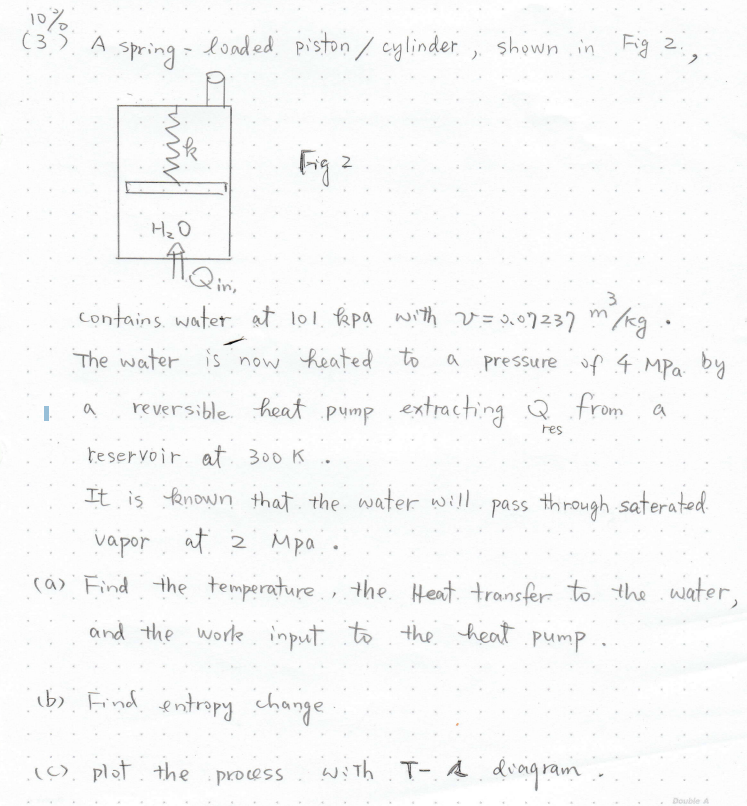 10%
(3) A spring-loaded piston/cylinder, shown in Fig 2.,
k
Fig 2
H₂O
Qin,
contains water at 101 kpa with v=0.07237 m³/kg.
The water is now heated to a pressure of 4 MPa by
a reversible heat pump extracting Q res from a
reservoir at 300 K.
It is known that the water will pass through saterated
vapor at 2 Mpa.
(a) Find the temperature, the Heat transfer to the water,
and the work input to the heat pump.
(b) Find entropy change
(c) plot the process with T-s diagram.
Double A